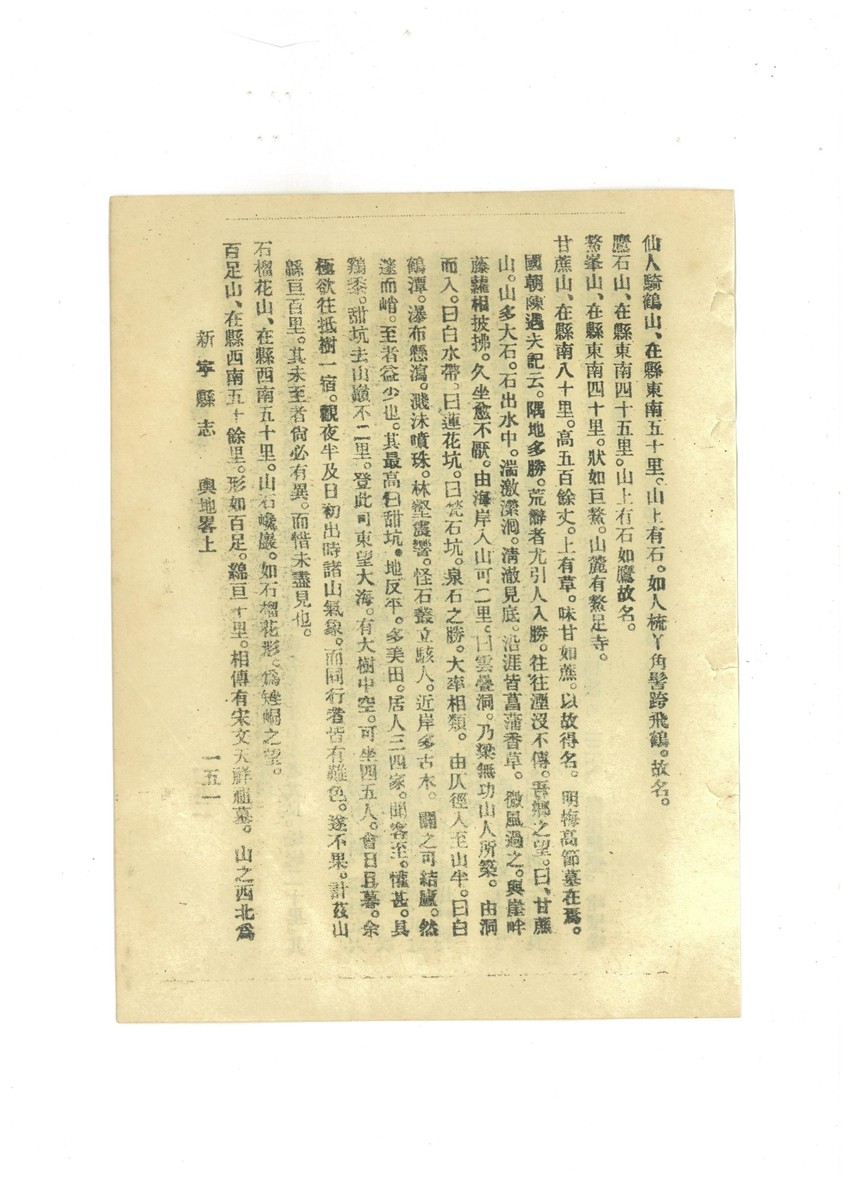 仙人騎鶴山、在縣東南五十里。山上有石。如人梳丫角髻跨飛鶴。故名。
鷹石山、在縣東南四十五里。山上有石如鷹故名。
鰲峯山、在縣東南四十里。狀如巨鰲。山麓有鰲足寺。
甘蔗山、在縣南八十里。高五百餘丈。上有草。味甘如蔗。以故得名。明梅高節墓在焉。
國朝陳遇夫記云。隅地多勝。荒僻者尤引人入勝。往往湮沒不傳。吾鄉之望。曰、甘蔗
山。山多大石。石出水中。湍激瀠洄。淸澈見底。沿涯皆菖蒲香草。微風過之。與崖畔
藤蘿相披拂。久坐愈不厭。由海岸入山可二里。曰雲疊洞。乃梁無功山人所築。由洞
而入。曰白水帶。曰蓮花坑。曰梵石坑。泉石之勝。大率相類。由仄徑入至山半。曰白
鶴潭。瀑布懸瀉。濺沫噴珠。林壑震響。怪石叢立駭人。近岸多古木。闢之可結廬。然
邃而峭。至者益少也。其最高曰甜坑。地反平。多美田。居人三四家。聞客至。懽甚。具
鷄黍。甜坑去山巔不二里。登此可東望大海。有大樹中空。可坐四五人。會日且暮。余
極欲往抵樹一宿。觀夜半及日初出時諸山氣象。而同行者皆有難色。遂不果。計茲山
緜亘百里。其未至者尙必有異。而惜未盡見也。
石榴花山、在縣西南五十里。山石巉巖。如石榴花形。爲矬峒之望。
百足山、在縣西南五十餘里。形如百足。綿亘十里。相傳有宋文天祥祖墓。山之西北爲
新寧縣志　輿地畧上　一五一